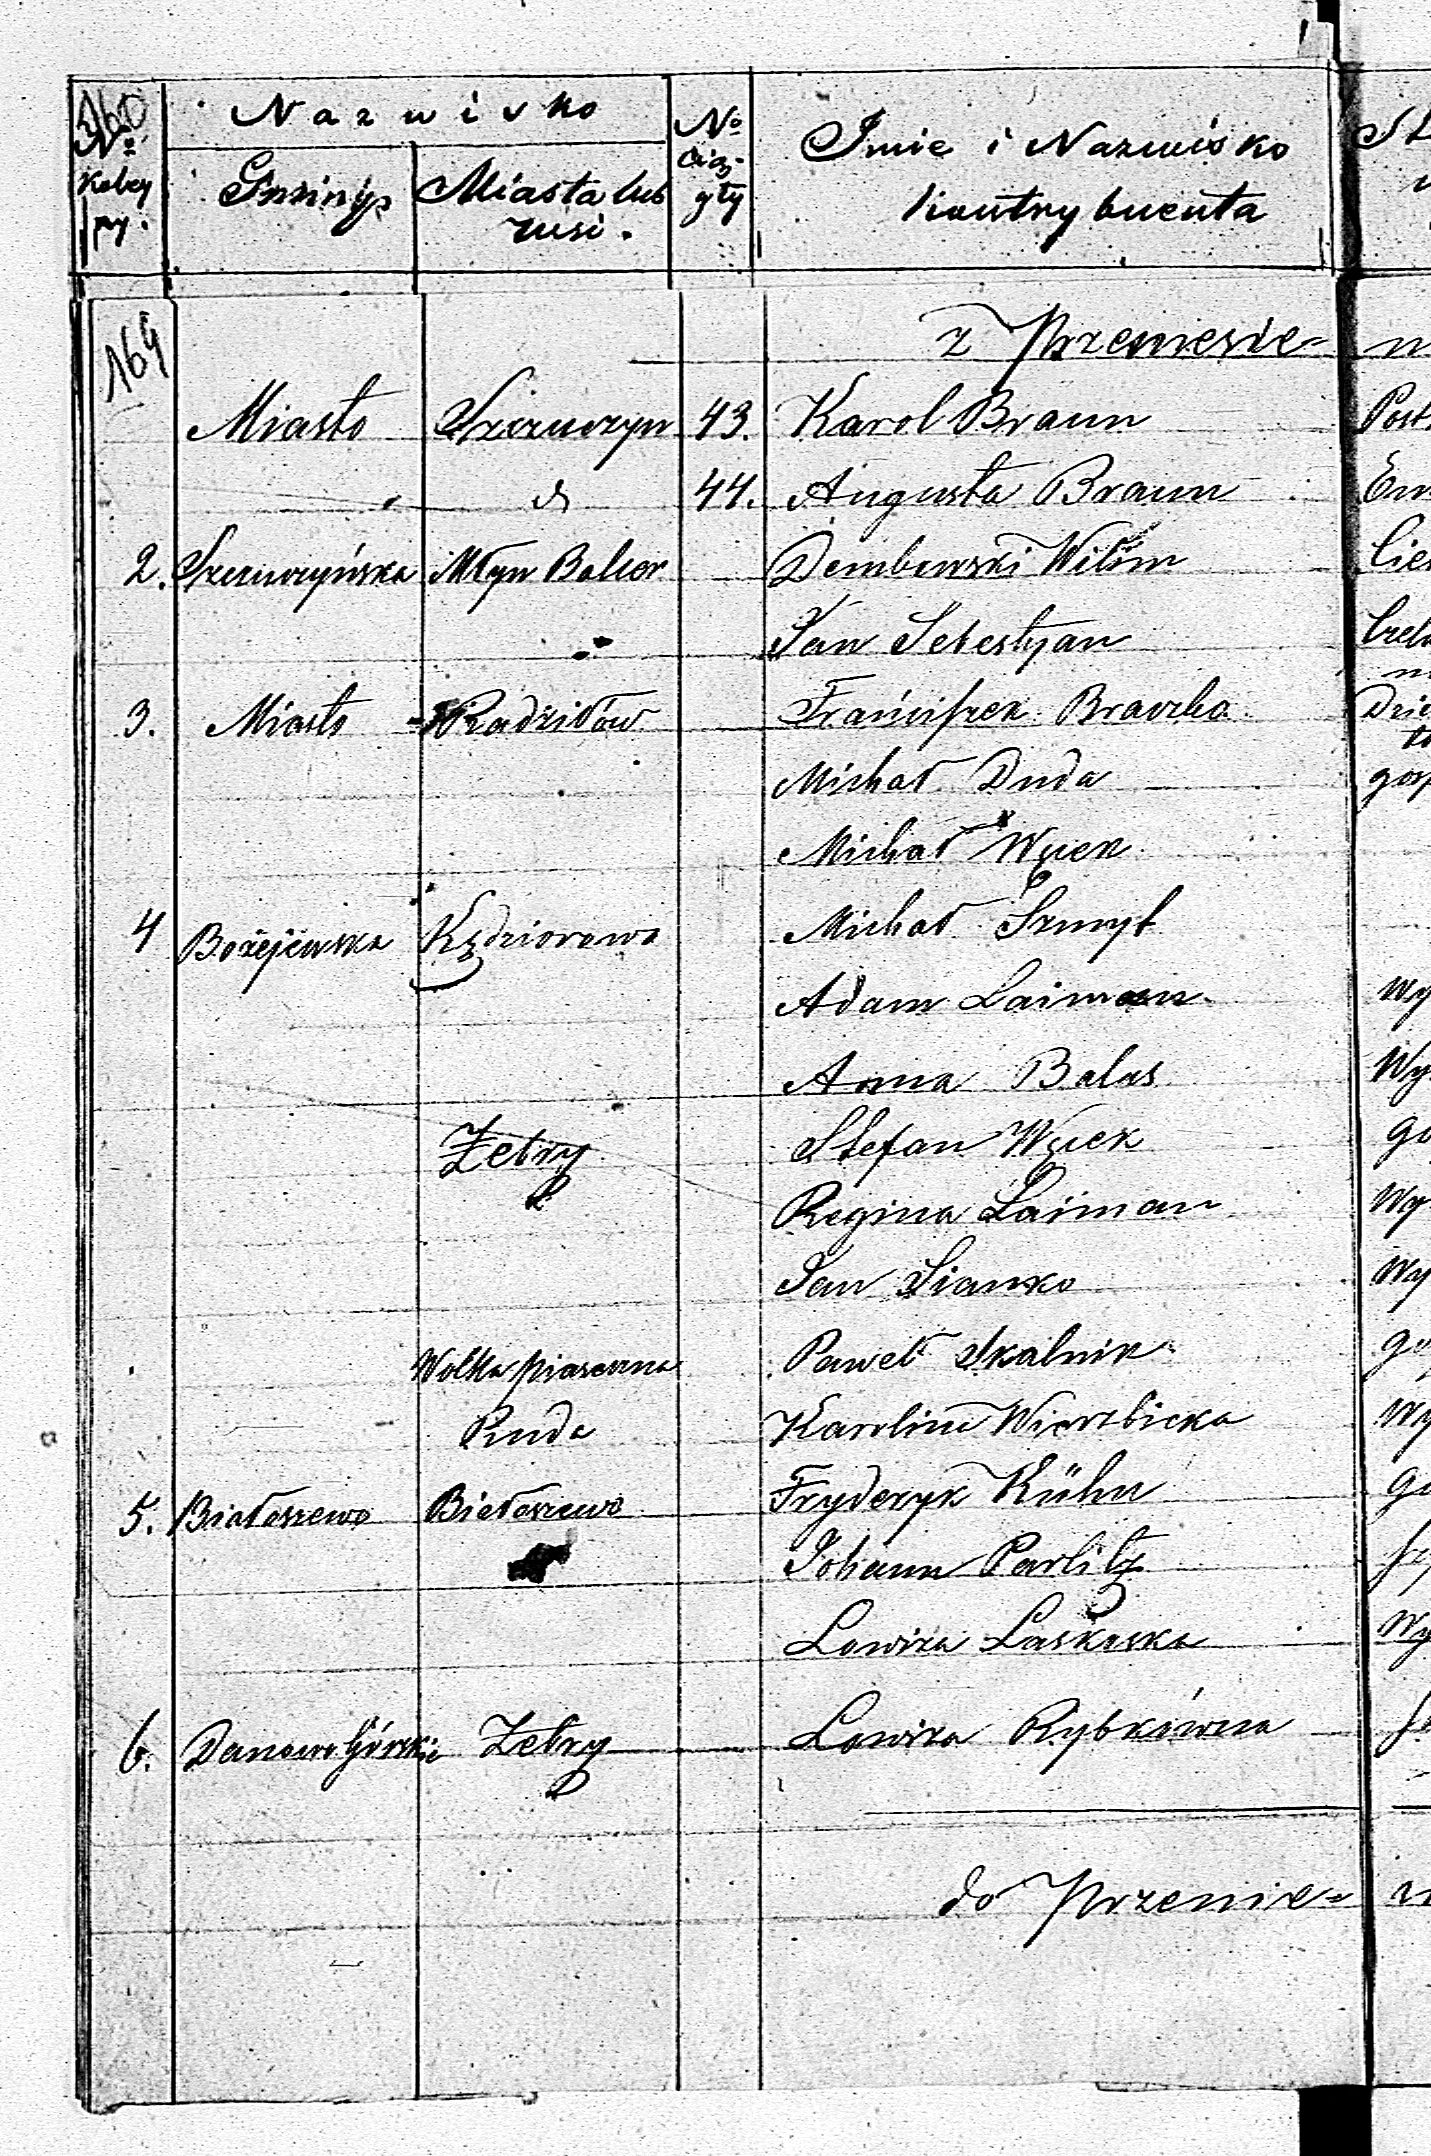 160
Nazwisko
No kolej ny.
Gminy
Miasta lub wsi.
No ciąg- gły
Imie i Nazwisko
Kontrybuenta
164
z Przeniesie-
Miasto Szczuczyn 43. Karol Braun
44. Augusta Braun
2. Szczuczyńska Młyn Balcer Dembowski Wilim
Jan Sebestyan
3. Miasto Radziłów Franciszek Braczko
Michał Duda
Michał Wyiek
4 Bożejewska Kędziorowo Michał Szmyt
Adam Laiman
Anna Balas
Żebry Stefan Wyiek
Regina Laiman
Jan Sianko
Wolka piaseczna Paweł Skalnik
Ruda Karolina Wierzbicka
5. Białoszewo Białoszewo Fryderyk Kühn
Johann Parlitz
Lowiza Laskoska
6. Danowo Górskie Żebry Lowiza Rybkówna
do Przenie-